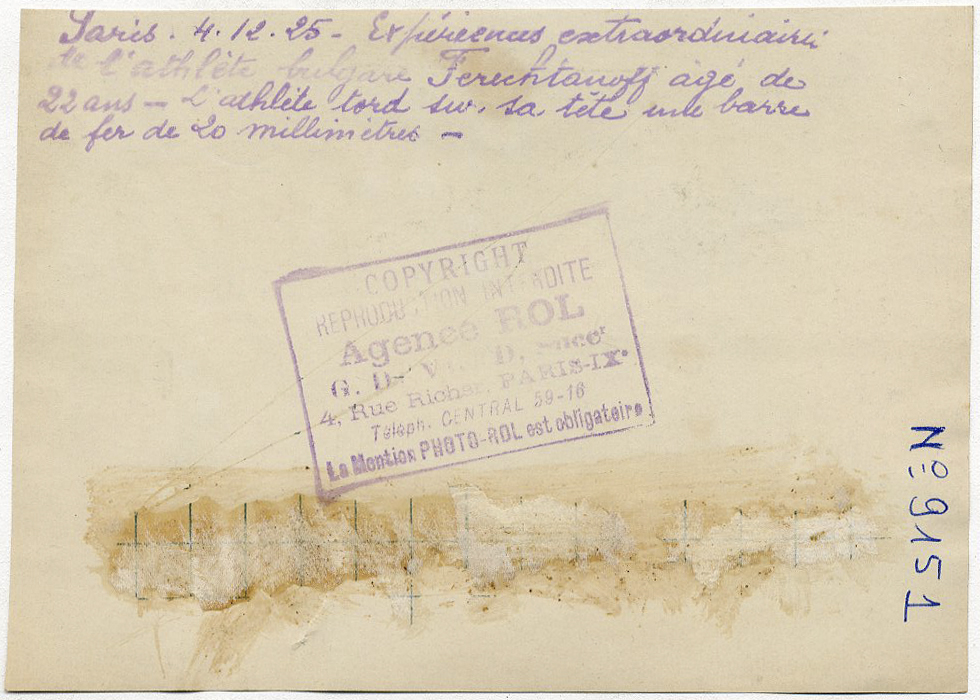 Paris. 4.12.25 - Expériences extraordinaires
de l'athlète bulgare Ferechtanoff âgé de
22 ans - L'athlète tord sur sa tête une barre
de fer de 20 millimètres -
COPYRIGHT
REPRODUCTION INTERDITE
Agence ROL
G. D.
4, Rue Richer, PARIS-IXᵉ
Téleph. CENTRAL 59-16
La Mention PHOTO-ROL est obligatoire
Nº 9151